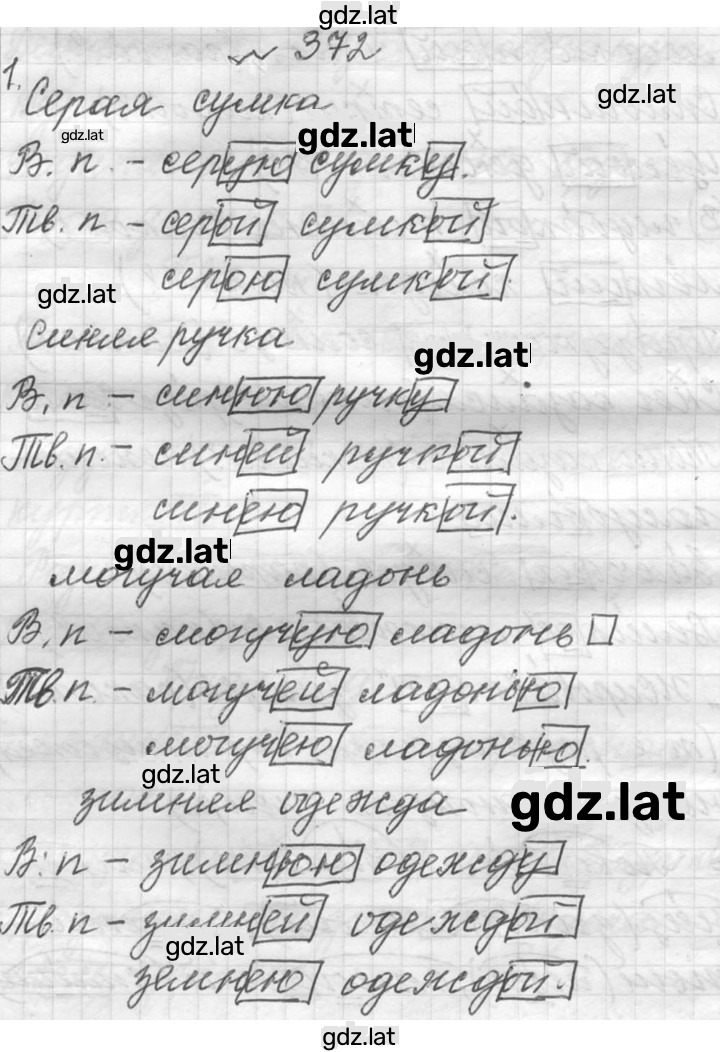 gdz.lat
№ 372
1.
Серая сумка
gdz.lat
gdz.lat
gdz.lat
В. п. - серую сумку.
Тв. п - серой сумкой
серою сумкой.
gdz.lat
Синяя ручка
gdz.lat
В. п - синюю ручку
Тв. п. - синей ручкой
синею ручкой.
gdz.lat
могучая ладонь
В. п - могучую ладонь
Тв. п. - могучей ладонью
могучею ладонью.
gdz.lat
зимняя одежда
gdz.lat
В. п - зимнюю одежду
Тв. п - зимней одеждой
gdz.lat
земнею одеждой.
gdz.lat